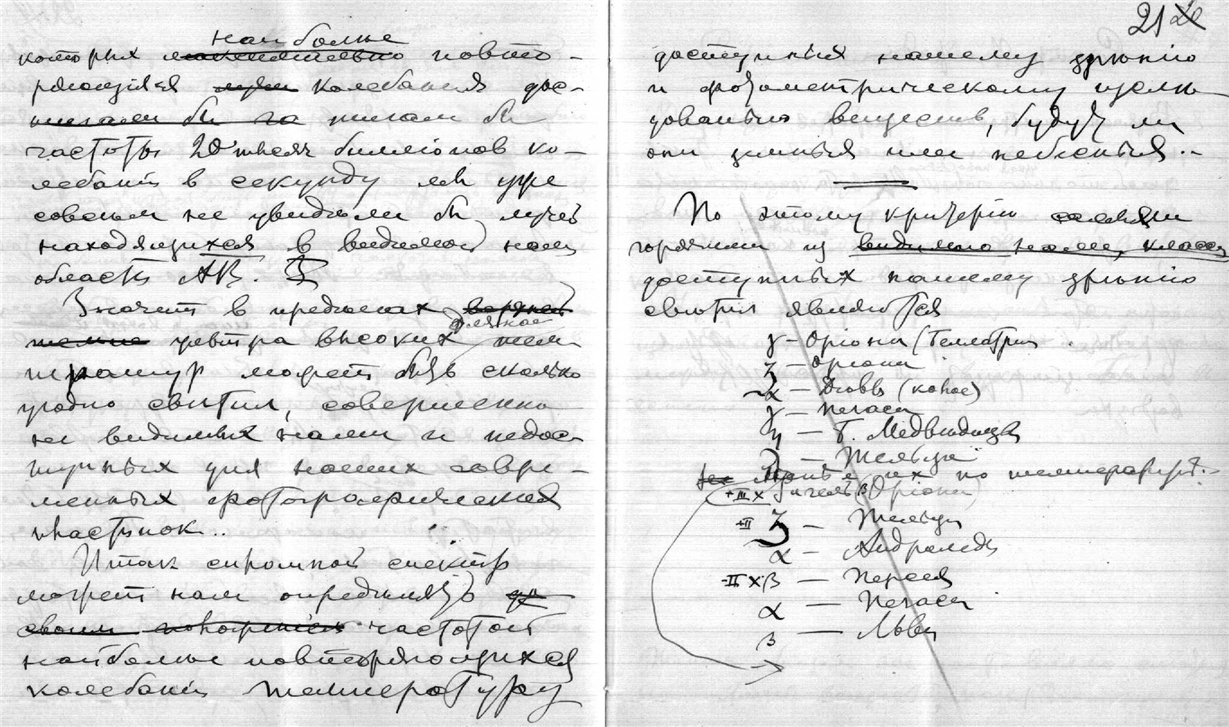 наиболѣе
которых повто-
ряющіяся колебанія дос-
тигали бы
частоты 20 тысяч билліонов ко-
лебаній в секунду мы уже
совсѣм не увидѣли бы лучей
находящихся в видимой нам
области АВ.
Значит в предѣлах
спектра высоких тем-
ператур может быть сколько
угодно свѣтил, совершенно
не видимых нам и недос-
тупных для наших совре-
менных фотографических
пластинок..
Итак скромный спектр
может нам опредѣлять
частотой
наиболѣе повторяющихся
колебаній температуру
21
доступных нашему зрѣнію
и фотометрическому изслѣ-
дованію веществ, будут ли
они земныя или небесныя..
По этому критерію самыми
горячими из видимаго нами класса
доступных нашему зрѣнію
свѣтил являются
γ — Оріона (
ζ — Оріона
α — Дѣвы (колос)
γ — Пегаса
η — Б. Медвѣдицы
— Тельца
них по температурѣ..
+III × Ригель (β Оріона)
+II ζ — Тельца
α — Андромеды
-II × β — Персея
α — Пегаса
β — Льва